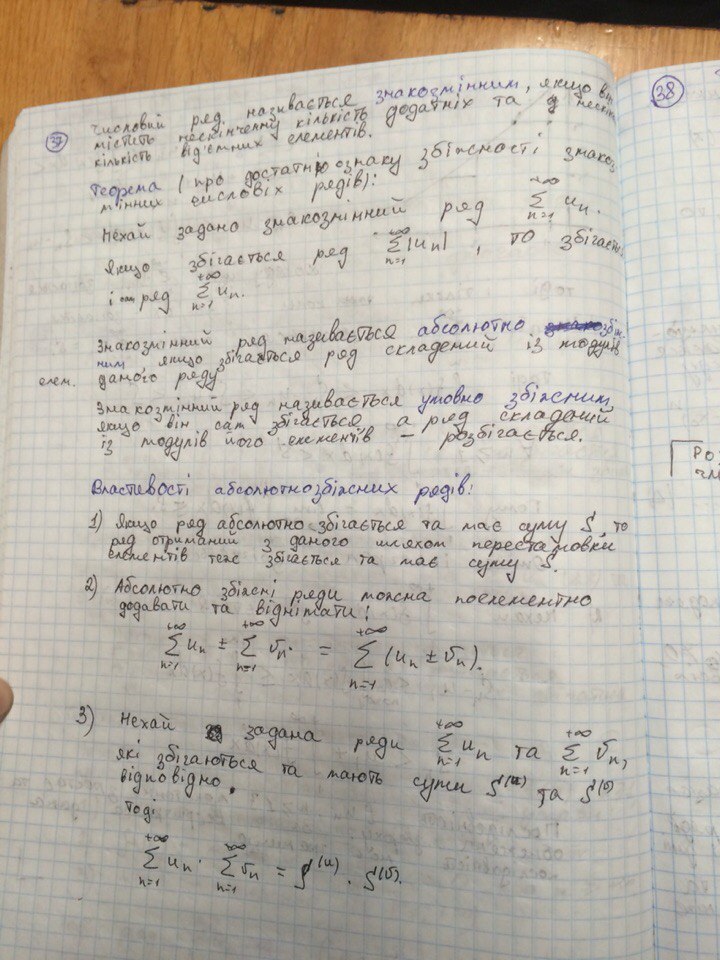 37
Числовий ряд називається знакозмінним, якщо він
містить нескінченну кількість додатніх та
кількість від'ємних елементів.
Теорема (про достатню ознаку збіжності знакоз
мінних числових рядів):
Нехай задано знакозмінний ряд \sum_{n=1}^{+∞} u_n.
Якщо збігається ряд \sum_{n=1}^{+∞} |u_n|, то збігаєть
і сам ряд \sum_{n=1}^{+∞} u_n.
Знакозмінний ряд називається абсолютно збіж-
ним, якщо збігається ряд складений із модулів
елем. даного ряду.
Знакозмінний ряд називається умовно збіжним
якщо він сам збігається, а ряд складений
із модулів його елементів – розбігається.
Властивості абсолютнозбіжних рядів:
1) Якщо ряд абсолютно збігається та має суму S, то
ряд отриманий з даного шляхом перестановки
елементів теж збігається та має суму S.
2) Абсолютно збіжні ряди можна поелементно
додавати та віднімати:
\sum_{n=1}^{+∞} u_n ± \sum_{n=1}^{+∞} v_n = \sum_{n=1}^{+∞} (u_n ± v_n).
3) Нехай задана ряди \sum_{n=1}^{+∞} u_n та \sum_{n=1}^{+∞} v_n,
які збігаються та мають суми S^{(u)} та S^{(v)}
відповідно.
Тоді
\sum_{n=1}^{+∞} u_n · \sum_{n=1}^{+∞} v_n = S^{(u)} · S^{(v)}.
38